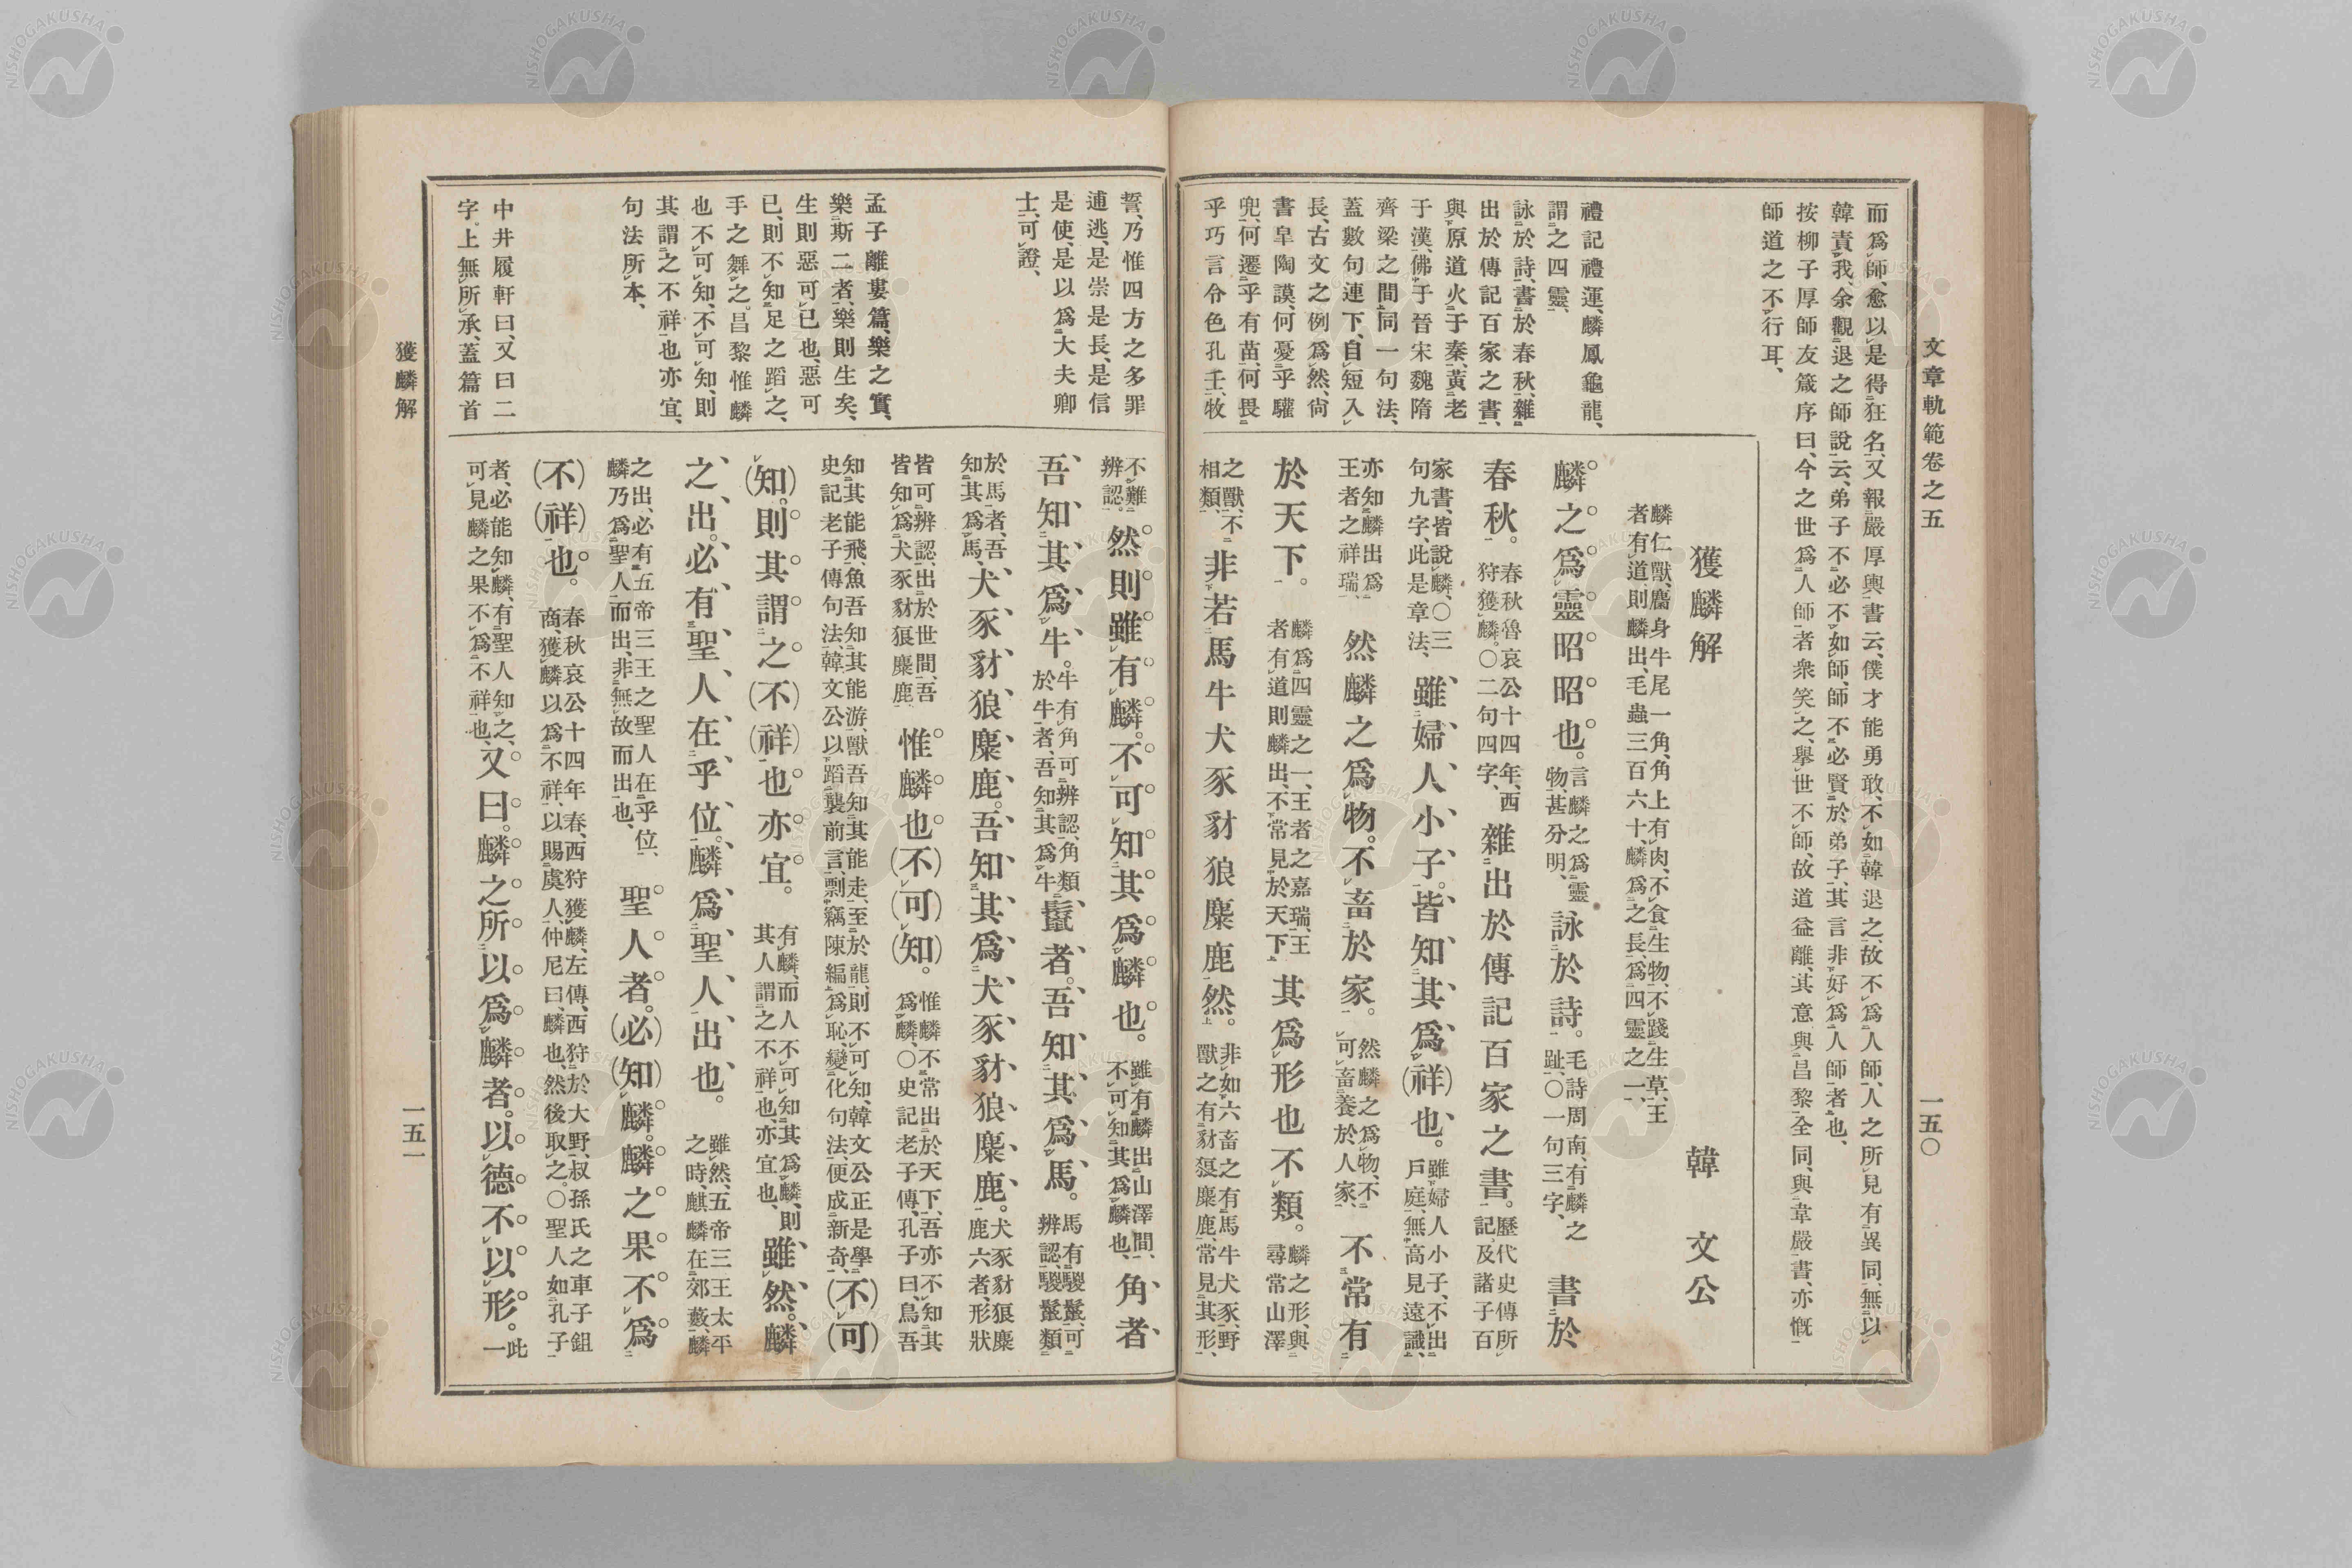 文章軌範卷之五
一五〇
而爲師、愈以是得狂名、又報嚴厚輿書云、僕才能勇敢、不如韓退之、故不爲人師、人之所見有異同、無以
韓責我、余觀退之師說云、弟子不必不如師、師不必賢於弟子、其言非好爲人師者也、
按柳子厚師友箴序曰、今之世爲人師者衆笑之、擧世不師、故道益離、其意與昌黎全同、與韋嚴書、亦慨
師道之不行耳、
禮記禮運、麟鳳龜龍、
謂之四靈、
詠於詩、書於春秋、雜
出於傳記百家之書、
與原道火于秦、黃老
于漢、佛于晉宋魏隋
齊梁之間、同一句法、
蓋數句連下、自短入
長、古文之例爲然、尙
書皐陶謨、何憂乎驩
兜、何遷乎有苗、何畏
乎巧言令色孔壬、牧
獲麟解　韓文公
麟仁獸、麕身牛尾一角、角上有肉、不食生物、不踐生草、王
者有道、則麟出、毛蟲三百六十、麟爲之長、爲四靈之一、
麟之爲靈昭昭也。言麟之爲靈物、甚分明、詠於詩。毛詩周南、有麟之趾、〇一句三字、書於
春秋。春秋魯哀公十四年、西狩獲麟。〇二句四字、雜出於傳記百家之書。歷代史傳所記、及諸子百
家書、皆說麟、〇三句九字、此是章法、雖婦人小子。皆知其爲(祥)也。雖婦人小子、不出戶庭、無高見遠識、
亦知麟出爲王者之祥瑞、然麟之爲物。不畜於家。然麟之爲物、不可畜養於人家、不常有
於天下。麟爲四靈之一、王者之嘉瑞、王者有道則麟出、不常見於天下其爲形也不類。麟之形、與尋常山澤
之獸、不相類、非若馬牛犬豕豺狼麋鹿然。非如六畜之有馬牛犬豕、野獸之有豺狼麋鹿、常見其形、
誓、乃惟四方之多罪
逋逃、是崇是長、是信
是使、是以爲大夫卿
士、可證、
孟子離婁篇、樂之實、
樂斯二者、樂則生矣、
生則惡可已也、惡可
已、則不知足之蹈之、
手之舞之。昌黎惟麟
也不可知、不可知、則
其謂之不祥也亦宜、
句法所本、
中井履軒曰、又曰二
字。上無所承、蓋篇首
不難辨認。然則雖有麟。不可知其爲麟也。雖有麟出山澤間、不可知其爲麟也、角者
吾知其爲牛。牛有角可辨認、角類於牛者、吾知其爲牛鬣者。吾知其爲馬。馬有騣鬣、可辨認、騣鬣類
於馬者、吾知其爲馬、犬豕豺狼麋鹿。吾知其爲犬豕豺狼麋鹿。犬豕豺狼麋鹿六者、形狀
皆可辨認、出於世間、吾皆知爲犬豕豺狼麋鹿惟麟也(不)(可)(知)。惟麟不常出於天下、吾亦不知其爲麟、〇史記老子傳、孔子曰、鳥吾
知其能飛、魚吾知其能游、獸吾知其能走、至於龍、則不可知、韓文公正是學史記老子傳句法、韓文公以蹈襲前言、剽竊陳編爲恥、變化句法、便成新奇、(不)(可)
(知)。則其謂之(不)(祥)也亦宜。有麟、而人不可知其爲麟、則其人謂之不祥也、亦宜也、雖然。麟
之出。必有聖人在乎位。麟爲聖人出也。雖然、五帝三王太平之時、麒麟在郊藪、麟
之出、必有五帝三王之聖人在乎位、麟乃爲聖人而出、非無故而出也、聖人者。(必)(知)麟。麟之果不爲
(不)(祥)也。春秋哀公十四年春、西狩獲麟、左傳、西狩於大野、叔孫氏之車子鉏商、獲麟以爲不祥、以賜虞人、仲尼曰、麟也、然後取之。〇聖人如孔子
者、必能知麟、有聖人知之、可見麟之果不爲不祥也、又曰。麟之所以爲麟者。以德不以形。此一
獲麟解
一五一